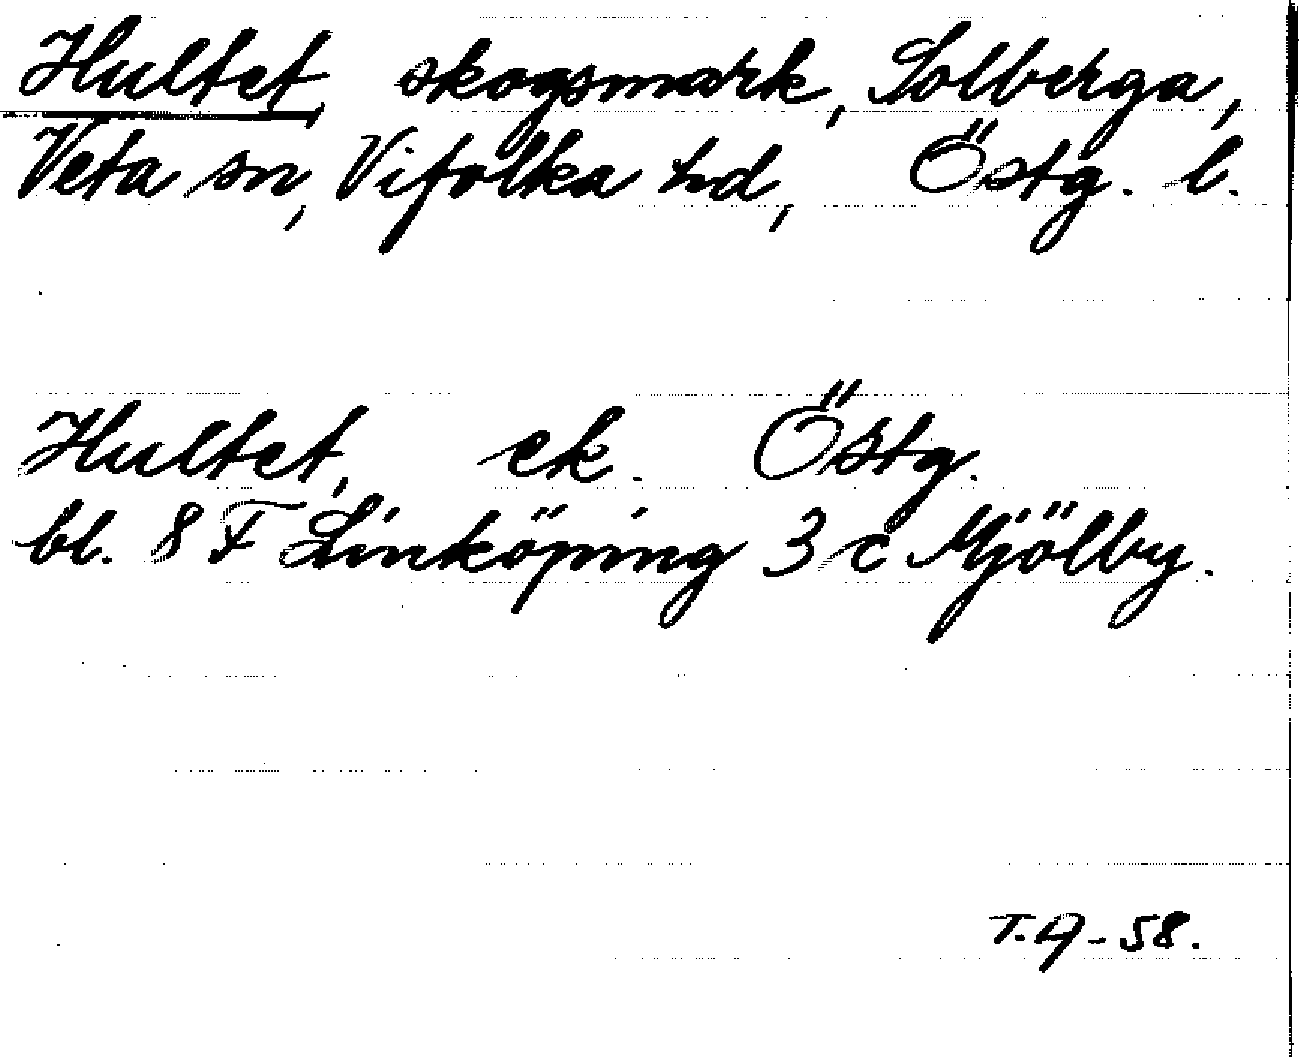 Hultet, skogsmark, Solberga,
Veta sn, Vifolka hd, Östg. l.
Hultet, ek. Östg.
bl. 8 F Linköping 3 c Mjölby.
T.A-58.